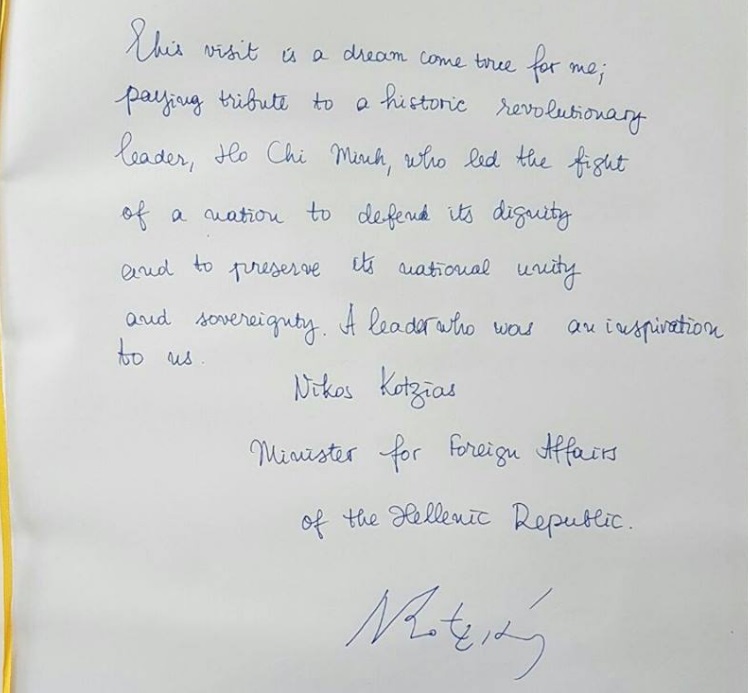 This visit is a dream come true for me;
paying tribute to a historic revolutionary
leader, Ho Chi Minh, who led the fight
of a nation to defend its dignity
and to preserve its national unity
and sovereignty. A leader who was an inspiration
to us.
Nikos Kotzias
Minister for Foreign Affairs
of the Hellenic Republic.
NKotziás